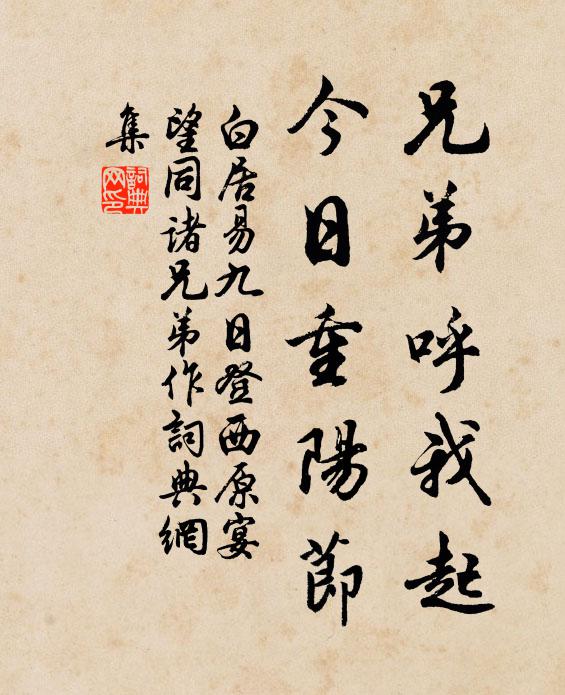 兄弟呼我起
今日重陽節
白居易九日登西原宴
望同諸兄弟作詞典網
集
詞典網印